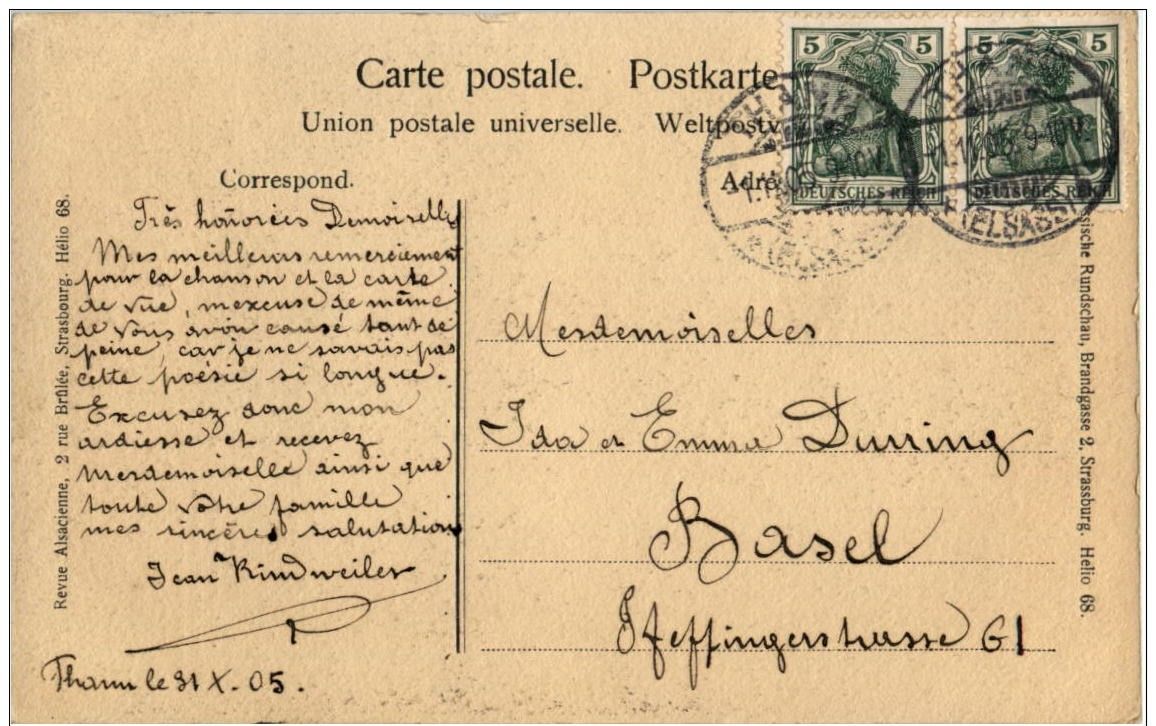 Carte postale. Postkarte
Union postale universelle. Weltpostv
5
5
DEUTSCHES REICH
DEUTSCHES REICH
1.11.05. 9-10V.
(ELSASS)
Correspond.
Adre
Très honorées Demoiselle
Mes meilleurs remerciement
pour la chanson et la carte
de vue, m'excuse de même
de vous avoir causé tant de
peine, car je ne savais pas
cette poésie si longue.
Excusez donc mon
ardiesse et recevez
Mesdemoiselle ainsi que
toute votre famille
mes sincères salutation
Jean Rindweiler
Thann le 31 X. 05.
Mesdemoiselles
Ida et Emma Durring
Basel
Pfeffingerstrasse 61
Revue Alsacienne, 2 rue Brûlée, Strasbourg. Hélio 68.
ssische Rundschau, Brandgasse 2, Strassburg. Helio 68.